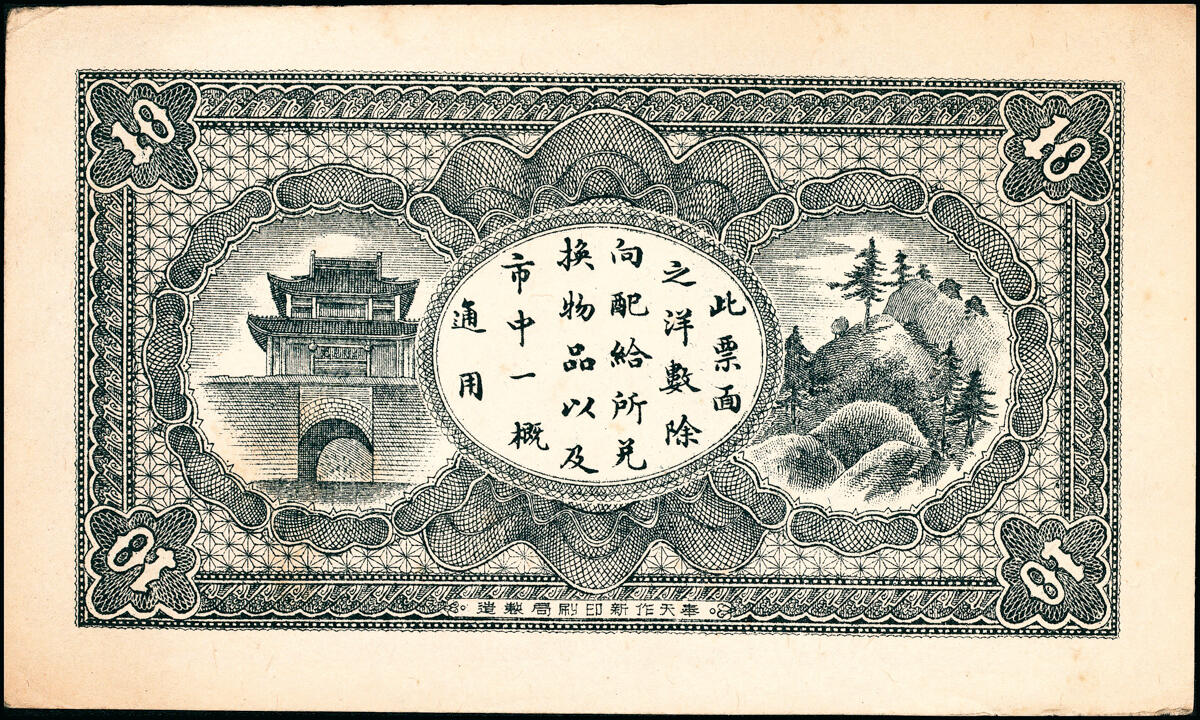 10
10
此票面
之洋數除
向配給所兑
換物品以及
市中一概
通用
10
10
奉天作新印刷局製造